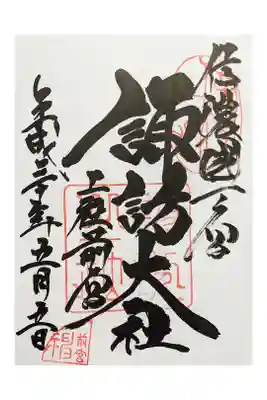 信濃國一之宮
諏訪大社
上社前宮
平成三十年五月五日
前宮